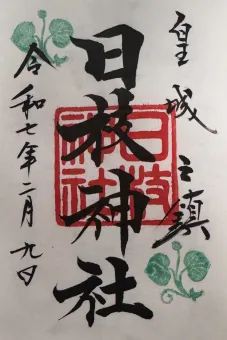 皇城之鎮
日枝神社
日枝神社
令和七年二月九日